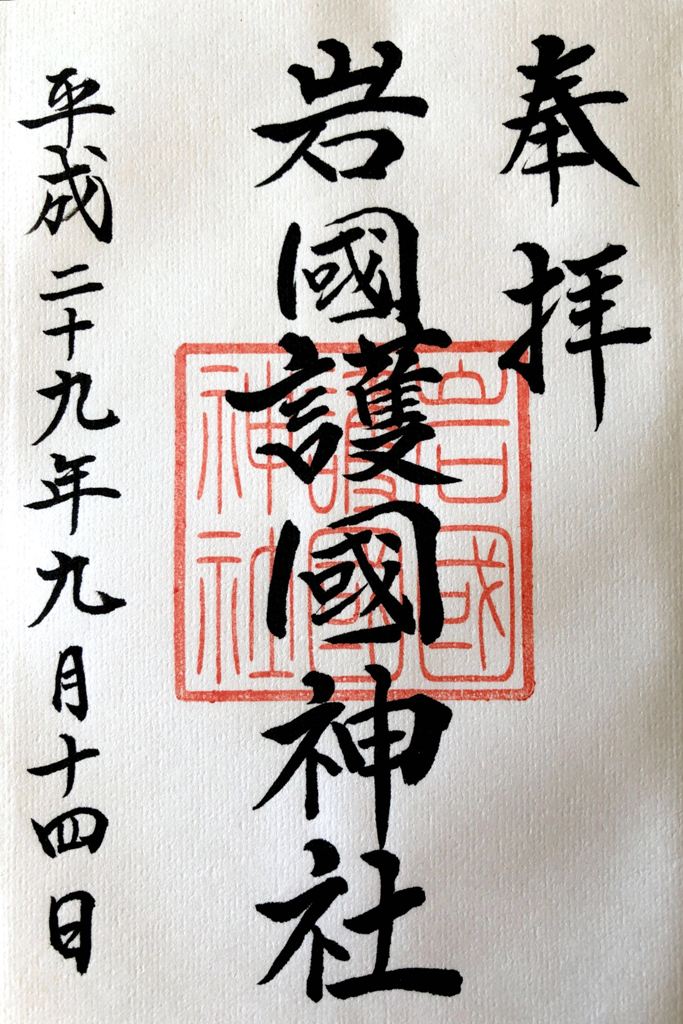 奉拝
岩國護國神社
岩國
護國
神社
平成二十九年九月十四日